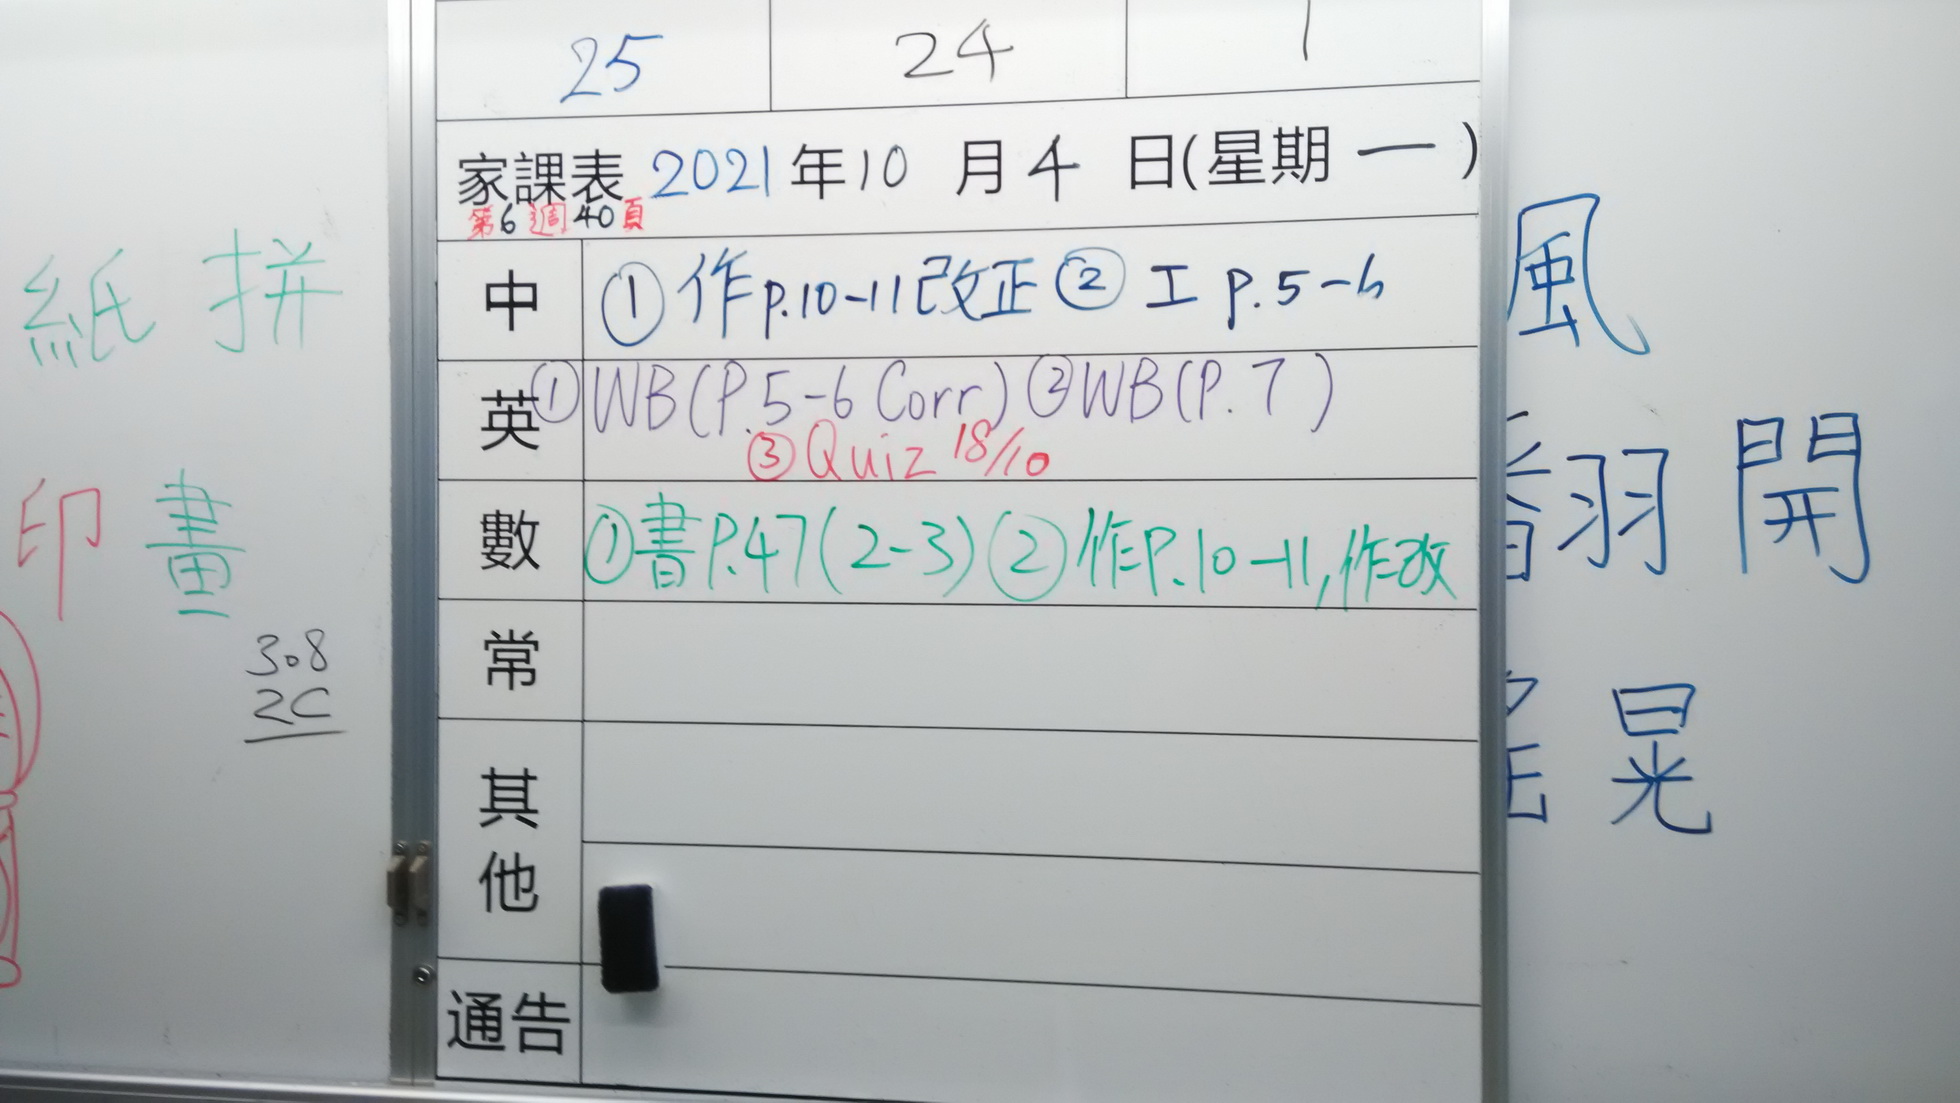 25 24 1
家課表 2021年10月4日(星期一)
第6週40頁
中 ①作p.10-11改正 ②工 p.5-6
英 ①WB(P.5-6 Corr) ②WB(P.7)
③Quiz 18/10
數 ①書P.47(2-3) ②作P.10-11,作改
常
其他
通告
紙 拼
印 畫
3.8
2C
風
翻 開
晃